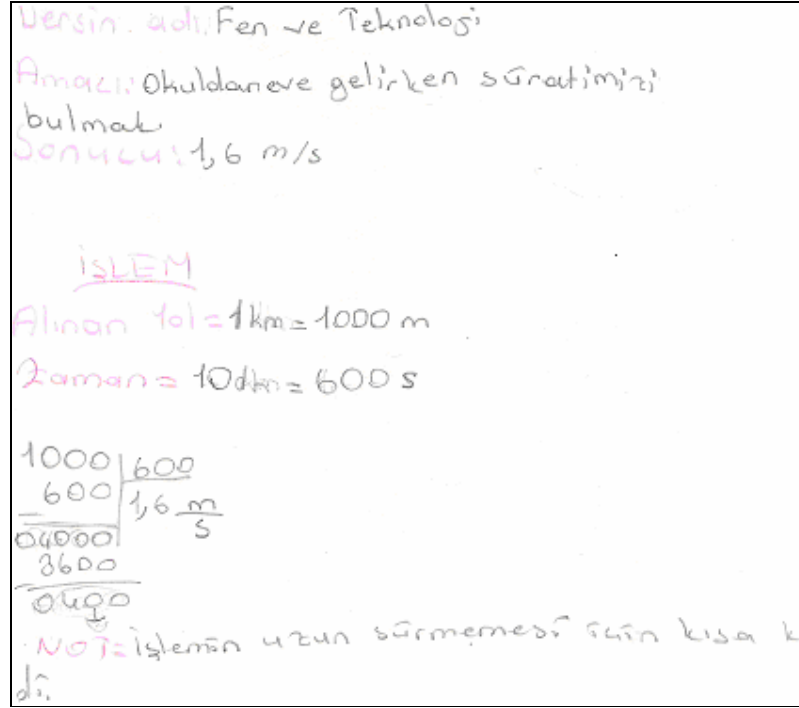 Dersin adı: Fen ve Teknoloji
Amacı: Okuldan eve gelirken süratimizi
bulmak
Sonucu: 1,6 m/s
İŞLEM
Alınan Yol = 1km = 1000 m
Zaman = 10dkn = 600 s
1000 | 600
600 | 1,6 m/s
04000
3600
0400
NOT = İşlemin uzun sürmemesi için kısa k
di.